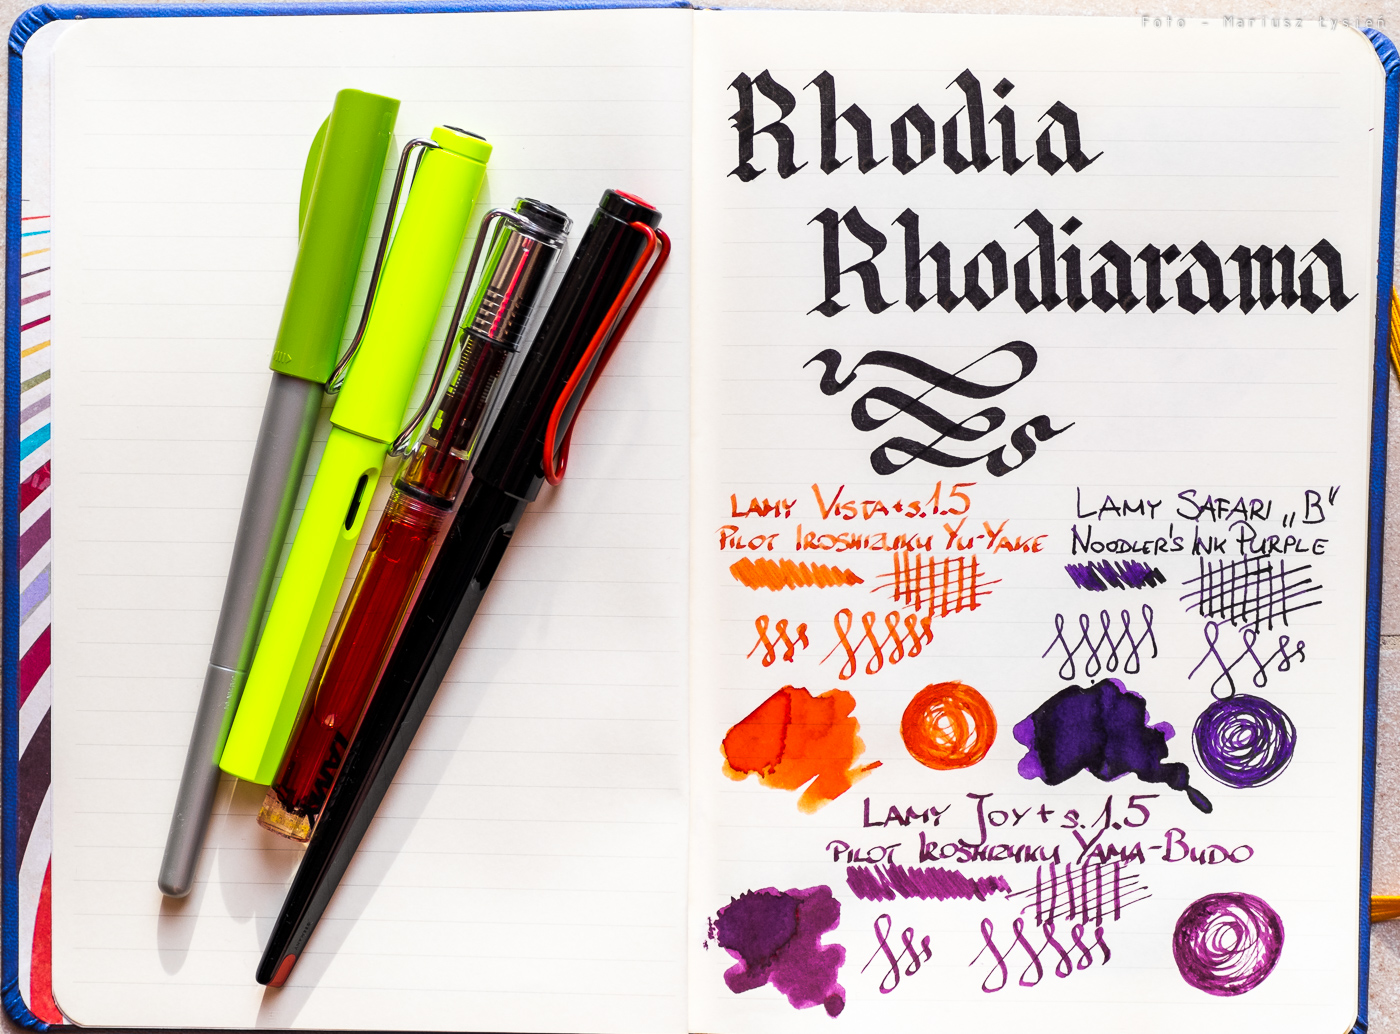 Foto - Mariusz Łysień
Rhodia
Rhodiarama
LAMY VISTA + s.1.5
PILOT IROSHIZUKU YU-YAKE
LAMY SAFARI „B"
NOODLER'S INK PURPLE
LAMY JOY + s.1.5
PILOT IROSHIZUKU YAMA-BUDO
LAMY